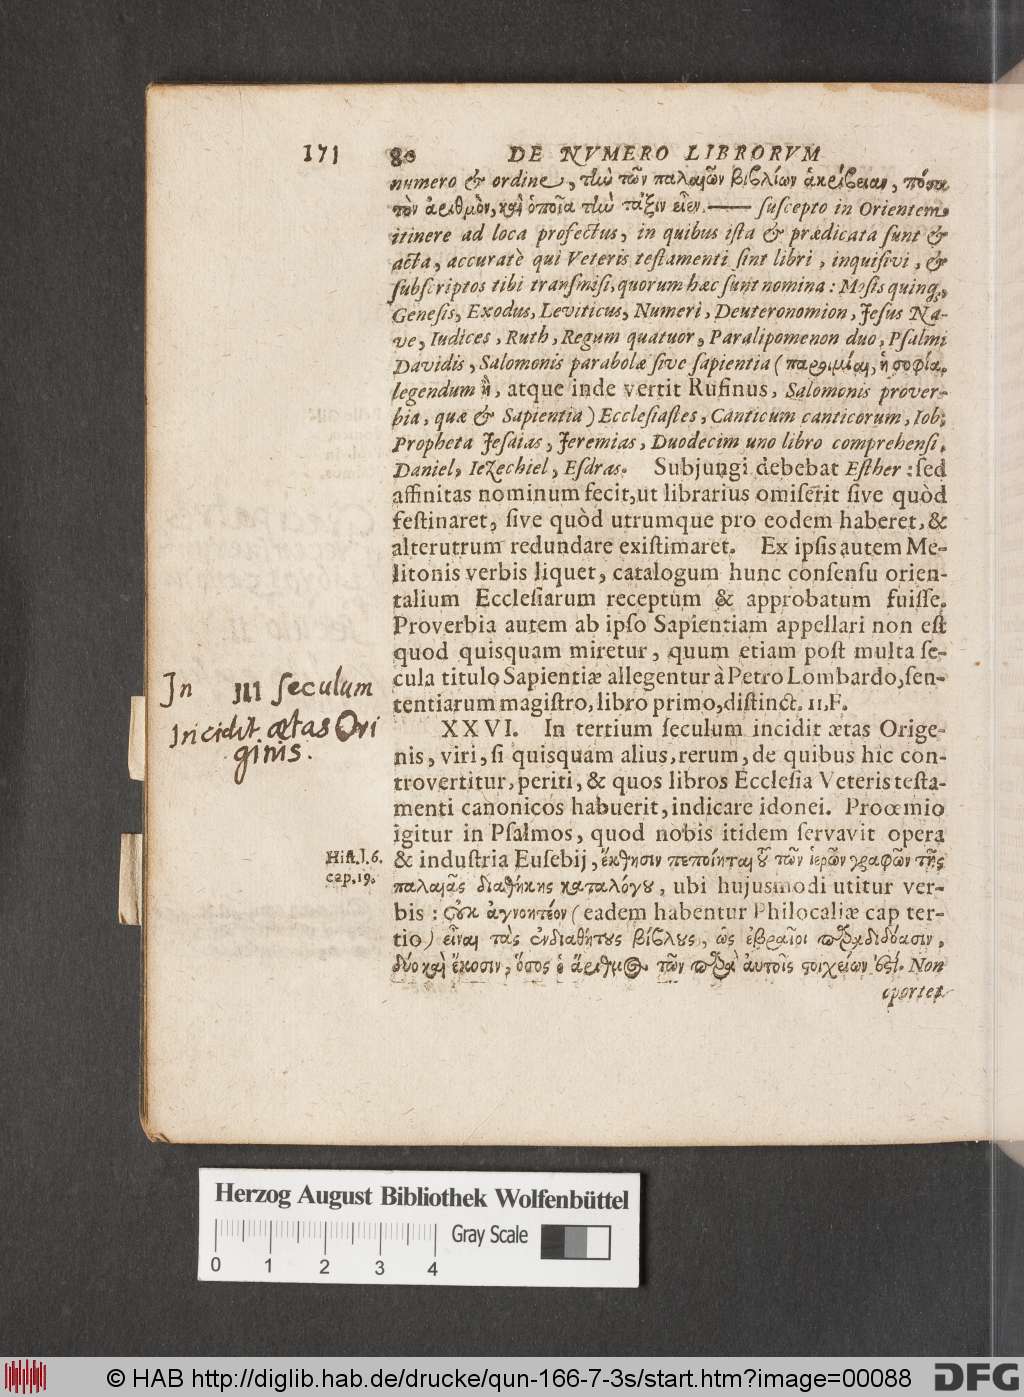 171 80 DE NVMERO LIBRORVM
numero & ordine, τὴν τῶν παλαιῶν βιβλίων ἀκρίβειαν, πόσα
τὸν ἀριθμὸν, καὶ ὁποῖα τὴν τάξιν εἶεν. —— ſuſcepto in Orientem
itinere ad loca profectus, in quibus iſta & prædicata ſunt &
acta, accuratè qui Veteris teſtamenti ſint libri, inquiſivi, &
ſubſcriptos tibi tranſmiſi, quorum hæc ſunt nomina: Moſis quinq;,
Geneſis, Exodus, Leviticus, Numeri, Deuteronomion, Jeſus Na-
ve, Iudices, Ruth, Regum quatuor, Paralipomenon duo, Pſalmi
Davidis, Salomonis parabolæ ſive ſapientia (παροιμίαι, ἡ σοφία,
legendum ἢ, atque inde vertit Rufinus, Salomonis prover-
bia, quæ & Sapientia) Eccleſiaſtes, Canticum canticorum, Iob,
Propheta Jeſaias, Jeremias, Duodecim uno libro comprehenſi,
Daniel, Iezechiel, Eſdras. Subjungi debebat Eſther: ſed
affinitas nominum fecit, ut librarius omiſerit ſive quòd
feſtinaret, ſive quòd utrumque pro eodem haberet, &
alterutrum redundare exiſtimaret. Ex ipſis autem Me-
litonis verbis liquet, catalogum hunc conſenſu orien-
talium Eccleſiarum receptum & approbatum fuiſſe.
Proverbia autem ab ipſo Sapientiam appellari non eſt
quod quisquam miretur, quum etiam poſt multa ſe-
cula titulo Sapientiæ allegentur à Petro Lombardo, ſen-
tentiarum magiſtro, libro primo, diſtinct. 11, F.
In III ſeculum
Incidit ætas Ori
ginis.
XXVI. In tertium ſeculum incidit ætas Orige-
nis, viri, ſi quisquam alius, rerum, de quibus hic con-
trovertitur, periti, & quos libros Eccleſia Veteris teſta-
menti canonicos habuerit, indicare idonei. Proœmio
igitur in Pſalmos, quod nobis itidem ſervavit opera
Hiſt. l. 6.
cap. 19.
& induſtria Euſebij, ἔκθησιν πεποίηται τοῦ τῶν ἱερῶν γραφῶν τῆς
παλαιᾶς διαθήκης καταλόγου, ubi hujusmodi utitur ver-
bis: οὐκ ἀγνοητέον (eadem habentur Philocaliæ cap ter-
tio) εἶναι τὰς ἐνδιαθήτους βίβλους, ὡς ἑβραῖοι παραδιδόασιν,
δύο καὶ ἔκοσιν, ὅσος ὁ ἄριθμος τῶν παρὰ αὐτοῖς στοιχείων ἐστί. Non
oportet
Herzog August Bibliothek Wolfenbüttel
Gray Scale
0 1 2 3 4
© HAB http://diglib.hab.de/drucke/qun-166-7-3s/start.htm?image=00088 DFG